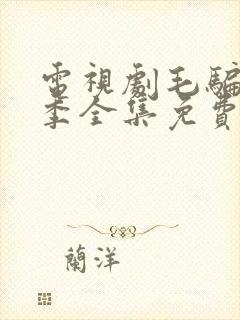 電視劇毛騙
季全集免費
蘭洋